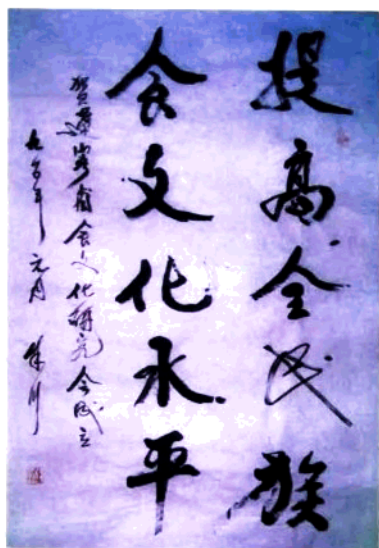 提高全民族
食文化水平
贺
食文化研究会成立
年元月